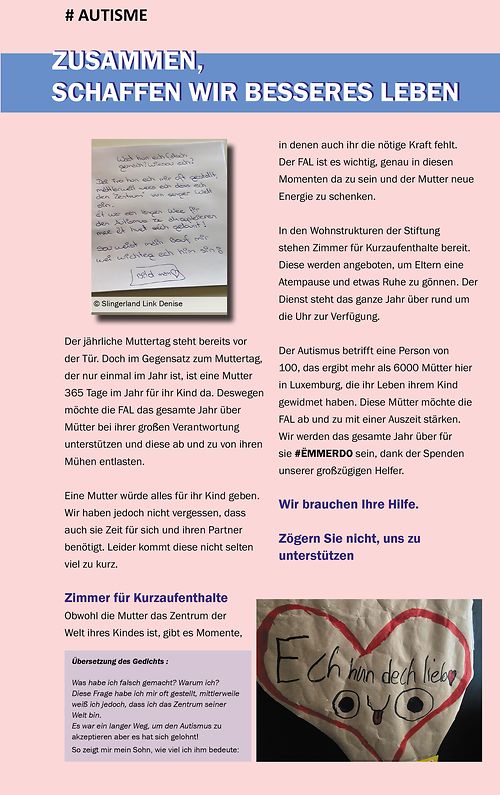 # AUTISME
ZUSAMMEN,
SCHAFFEN WIR BESSERES LEBEN
© Slingerland Link Denise
Der jährliche Muttertag steht bereits vor
der Tür. Doch im Gegensatz zum Muttertag,
der nur einmal im Jahr ist, ist eine Mutter
365 Tage im Jahr für ihr Kind da. Deswegen
möchte die FAL das gesamte Jahr über
Mütter bei ihrer großen Verantwortung
unterstützen und diese ab und zu von ihren
Mühen entlasten.
Eine Mutter würde alles für ihr Kind geben.
Wir haben jedoch nicht vergessen, dass
auch sie Zeit für sich und ihren Partner
benötigt. Leider kommt diese nicht selten
viel zu kurz.
Zimmer für Kurzaufenthalte
Obwohl die Mutter das Zentrum der
Welt ihres Kindes ist, gibt es Momente,
Übersetzung des Gedichts :
Was habe ich falsch gemacht? Warum ich?
Diese Frage habe ich mir oft gestellt, mittlerweile
weiß ich jedoch, dass ich das Zentrum seiner
Welt bin.
Es war ein langer Weg, um den Autismus zu
akzeptieren aber es hat sich gelohnt!
So zeigt mir mein Sohn, wie viel ich ihm bedeute:
in denen auch ihr die nötige Kraft fehlt.
Der FAL ist es wichtig, genau in diesen
Momenten da zu sein und der Mutter neue
Energie zu schenken.
In den Wohnstrukturen der Stiftung
stehen Zimmer für Kurzaufenthalte bereit.
Diese werden angeboten, um Eltern eine
Atempause und etwas Ruhe zu gönnen. Der
Dienst steht das ganze Jahr über rund um
die Uhr zur Verfügung.
Der Autismus betrifft eine Person von
100, das ergibt mehr als 6000 Mütter hier
in Luxemburg, die ihr Leben ihrem Kind
gewidmet haben. Diese Mütter möchte die
FAL ab und zu mit einer Auszeit stärken.
Wir werden das gesamte Jahr über für
sie #ËMMERDO sein, dank der Spenden
unserer großzügigen Helfer.
Wir brauchen Ihre Hilfe.
Zögern Sie nicht, uns zu
unterstützen
Ech hun dech lieb